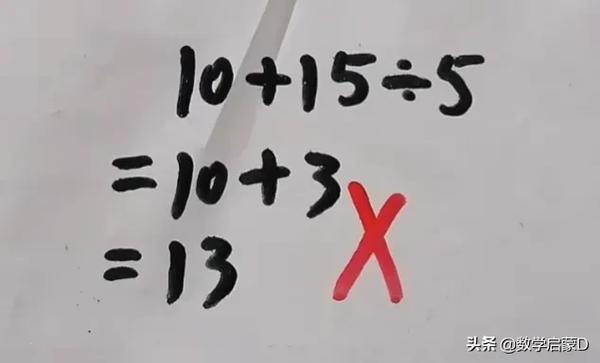 10+15÷5
=10+3
=13
X
头条 @数学启蒙D